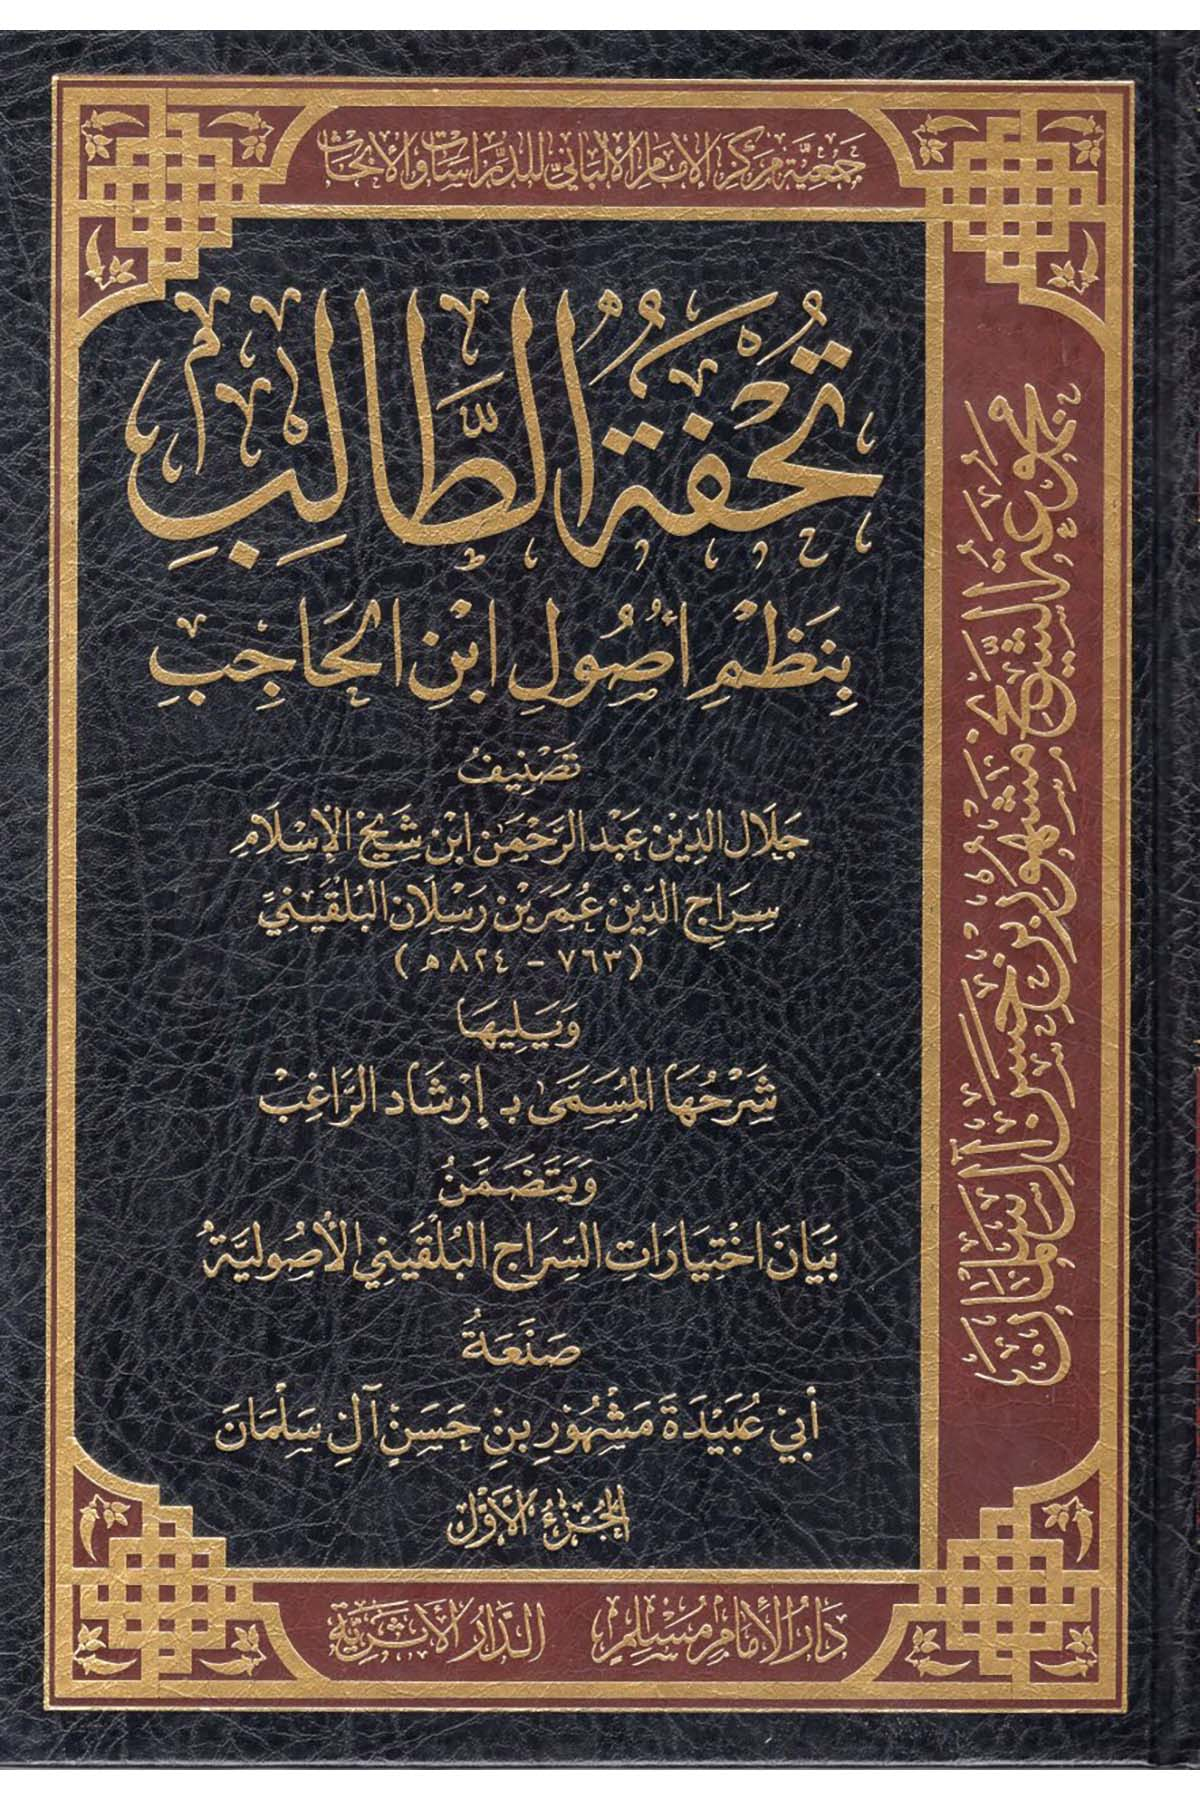 جمعية مركز الإمام الألباني للدراسات والأبحاث
تُحْفَةُ الطَّالِبِ
بِنَظْمِ أُصُولِ ابْنِ الحَاجِبِ
تَصْنِيفُ
جَلَال الدِّيْن عَبْد الرَّحْمَن ابْن شَيْخ الإِسْلَام
سِرَاج الدِّيْن عُمَر بْن رَسْلَان البُلْقَيْنِيِّ
(٧٦٣ - ٨٢٤ ه)
وَيَلِيهَا
شَرْحُهَا المُسَمَّى بـ إِرْشَاد الرَّاغِبْ
وَيَتَضَمَّنُ
بَيَانَ اخْتِيَارَاتِ السِّرَاجِ البُلْقَيْنِي الأُصُولِيَّةُ
صَنَعَةُ
أَبِي عُبَيْدَةَ مَشْهُورِ بْنِ حَسَنٍ آلِ سَلْمَانَ
الجُزْءُ الأَوَّل
دَارُ الإمَامِ مُسْلِمٍ الدَّارُ الأَثَرِيَّة
مجموعة الشيخ مشهور بن حسن آل سلمان